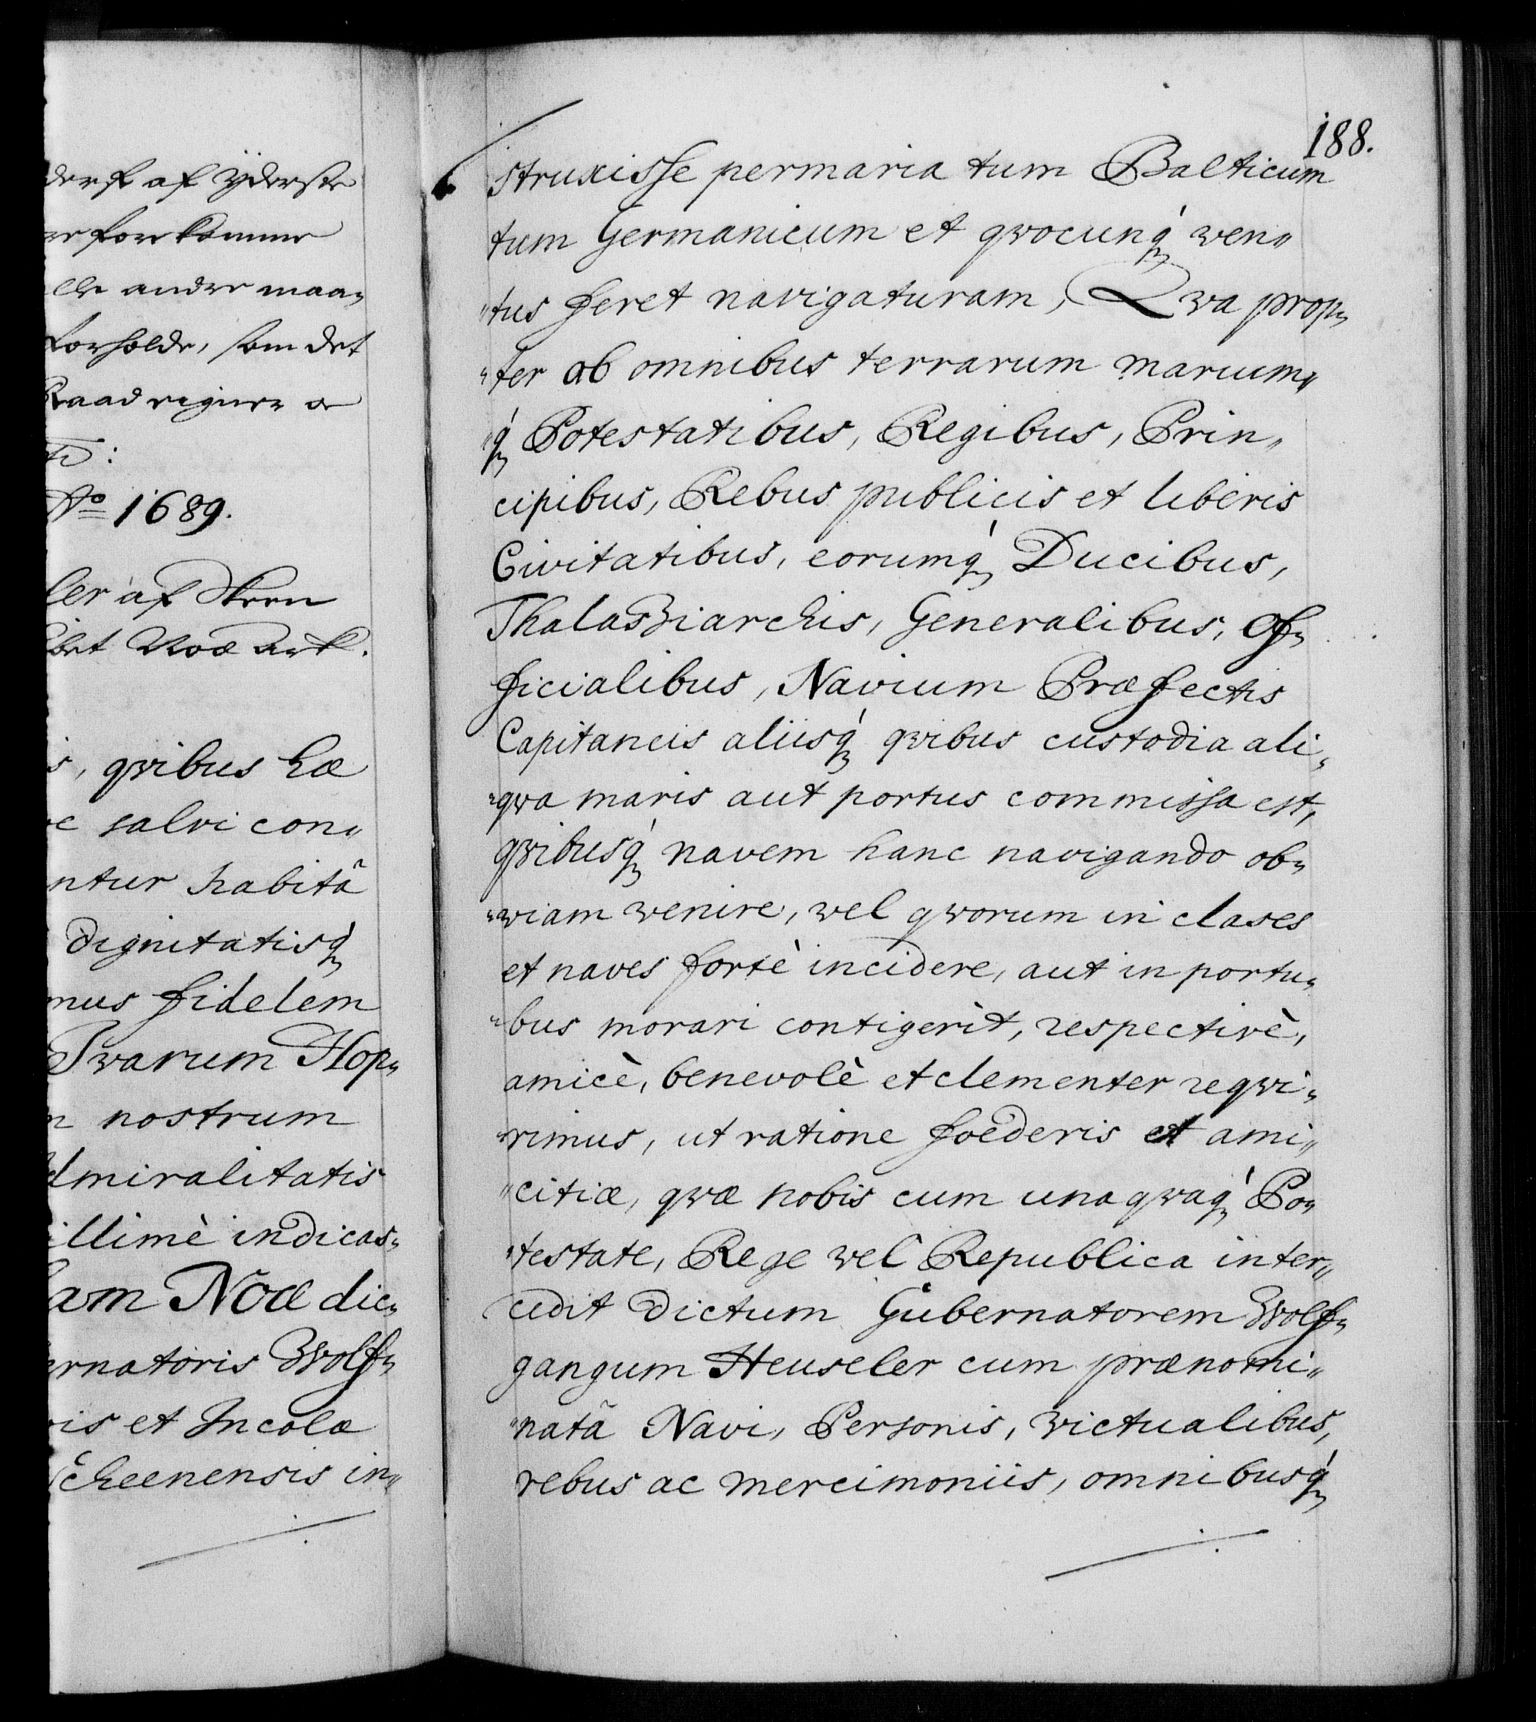 derst af yderste
forekomme
alle andre maa„
forholde, som det
Raad eigner oc
Ao 1689.
ler af Skeen
bet Noæ Ark.
s, qvibus hæ
salvi con„
ntur habitâ
dignitatisq́
mus fidelem
Svarum Hop„
nostrum
dmiralitatis
illimè indicas„
am Noæ dic„
ernatoris Wolf„
is et Incolæ
Scheenensis in„
188.
struxisse permaria tum Balticum
tum Germanicum et qvocunq́ ven„
„tus feret navigaturam, Qva prop„
„ter ab omnibus terrarum marium„
„q́ Potestatibus, Regibus, Prin„
cipibus, Rebus publicis et liberis
Civitatibus, eorumq́ Ducibus,
Thalassiarchis, Generalibus, Of„
ficialibus, Navium Præfectis
Capitaneis aliisq́ qvibus custodia ali„
„qva maris aut portus commissa est,
qvibusq́ navem hanc navigando ob„
„viam venire, vel qvorum in clases
et naves fortè incidere, aut in portu„
„bus morari contigerit, respectivè,
amicè, benevolè et clementer reqvi„
„rimus, ut ratione foederis et ami„
„citiæ, qvæ nobis cum unaqvaq́ Po„
„testate, Rege vel Republica inter„
cedit dictum Gubernatorem Wolf„
gangum Heuseler cum prænomi„
„natâ Navi, Personis, victualibus,
rebus ac mercimoniis, omnibusq́